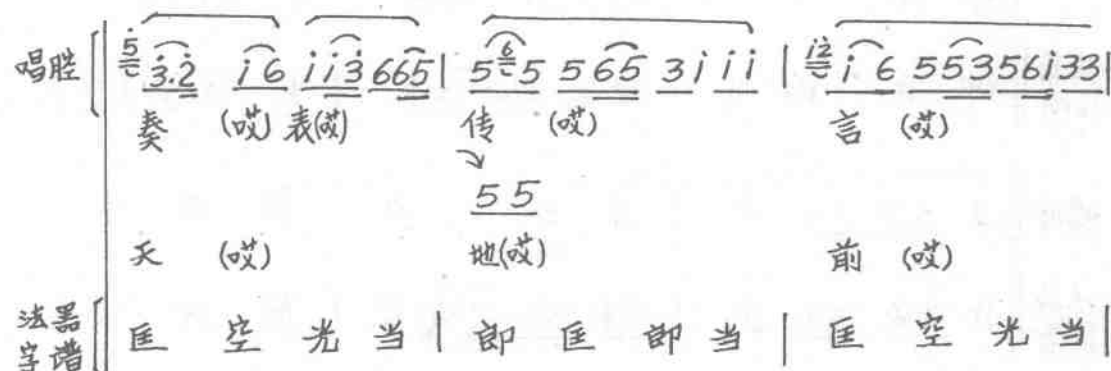 唱腔 5 3.2 i 6 i i 3 6 6 5 | 5 6 5 5 6 5 3 i i i | i 2 i 6 5 5 3 5 6 i 3 3 |
奏 (哎) 表(哎) 传 (哎) 言 (哎)
5 5
天 (哎) 地(哎) 前 (哎)
法器字谱 匡 空 光 当 | 郎 匡 郎 当 | 匡 空 光 当 |